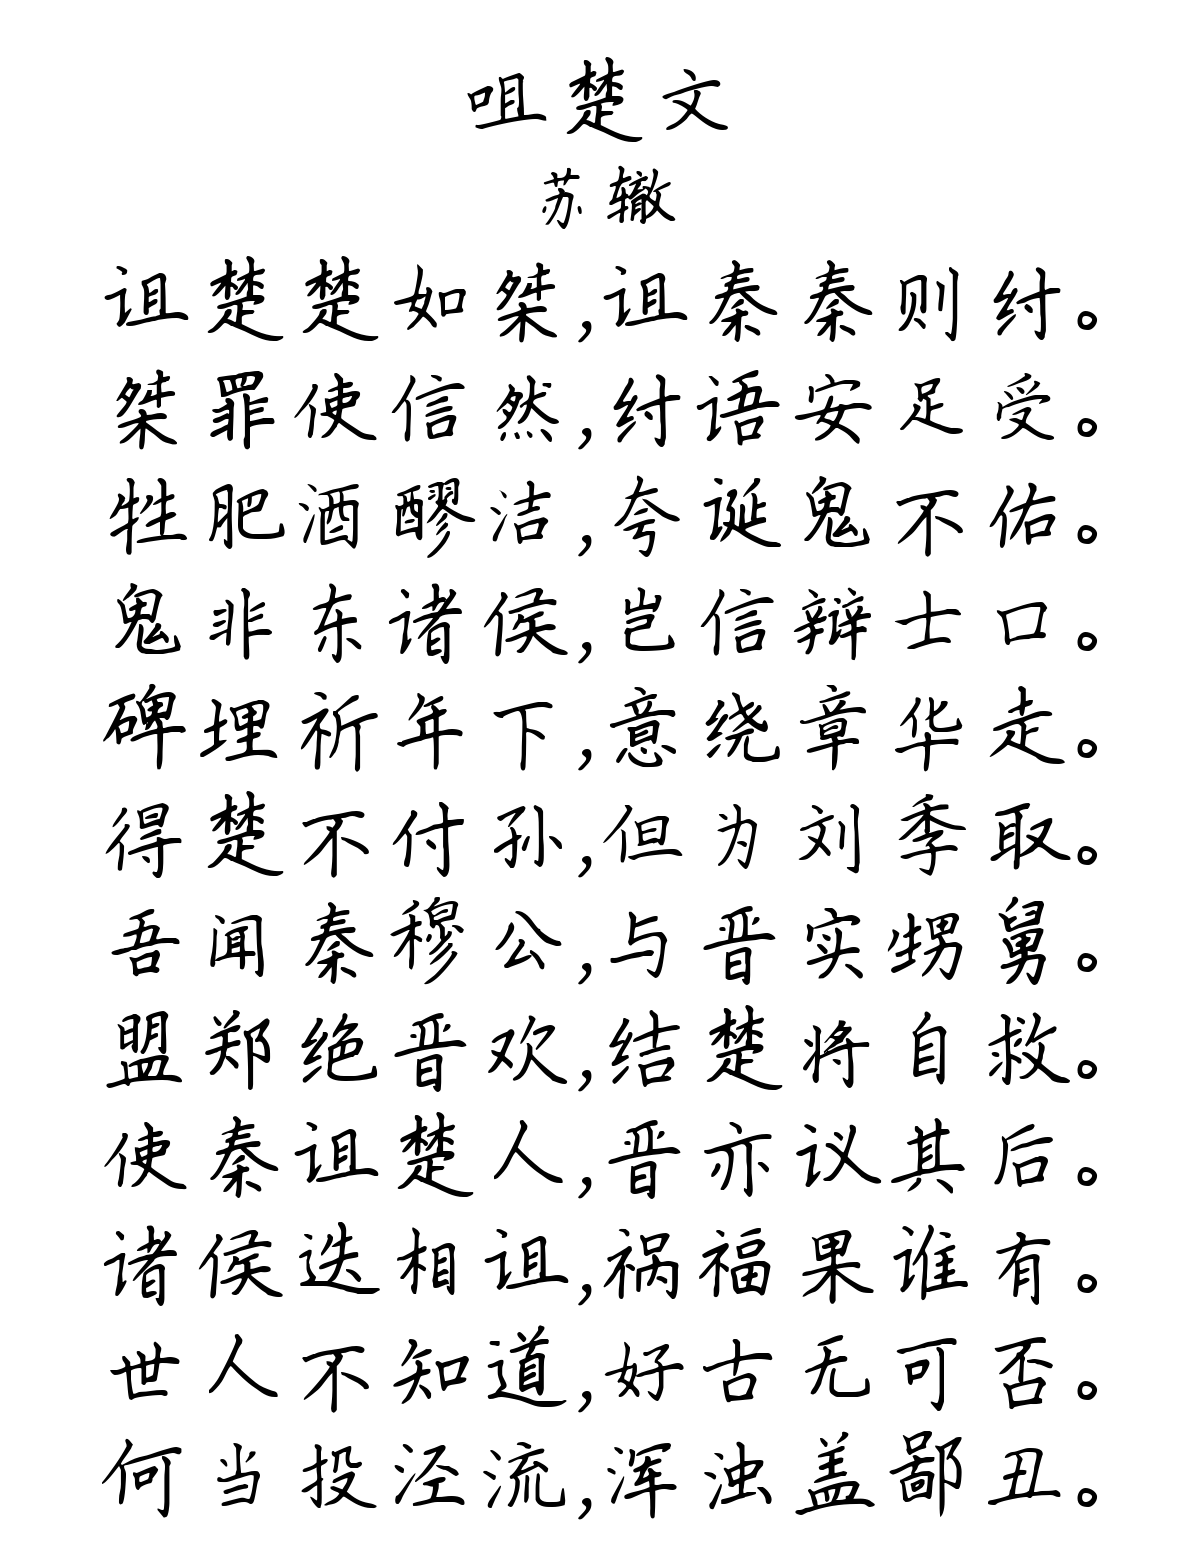 咀楚文
苏辙
诅楚楚如桀,诅秦秦则纣。
桀罪使信然,纣语安足受。
牲肥酒醪洁,夸诞鬼不佑。
鬼非东诸侯,岂信辩士口。
碑埋祈年下,意绕章华走。
得楚不付孙,但为刘季取。
吾闻秦穆公,与晋实甥舅。
盟郑绝晋欢,结楚将自救。
使秦诅楚人,晋亦议其后。
诸侯迭相诅,祸福果谁有。
世人不知道,好古无可否。
何当投泾流,浑浊盖鄙丑。